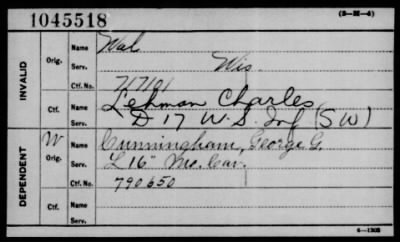 1045518
(3-M-4)
INVALID
Orig.
Name Wal
Serv. Wis.
Ctf. No. 717101
Ctf.
Name Lehman Charles
Serv. D 17 U.S. Inf (SW)
DEPENDENT
W
Orig.
Name Cunningham, George G.
Serv. L 16" Mo. Cav.
Ctf. No. 790650
Ctf.
Name
Serv.
6-1308